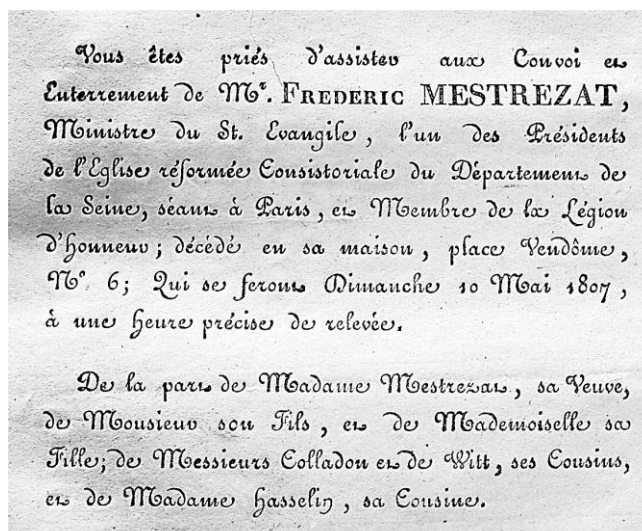 Vous êtes priés d'assister aux Convoi et
Enterrement de M.r FREDERIC MESTREZAT,
Ministre du St. Evangile, l'un des Présidents
de l'Eglise réformée Consistoriale du Département de
la Seine, séant à Paris, et Membre de la Légion
d'honneur; décédé en sa maison, place Vendôme,
N.o 6; Qui se feront Dimanche 10 Mai 1807,
à une heure précise de relevée.
De la part de Madame Mestrezat, sa Veuve,
de Monsieur son Fils, et de Mademoiselle sa
Fille; de Messieurs Colladon et de Witt, ses Cousins,
et de Madame Hasselin, sa Cousine.